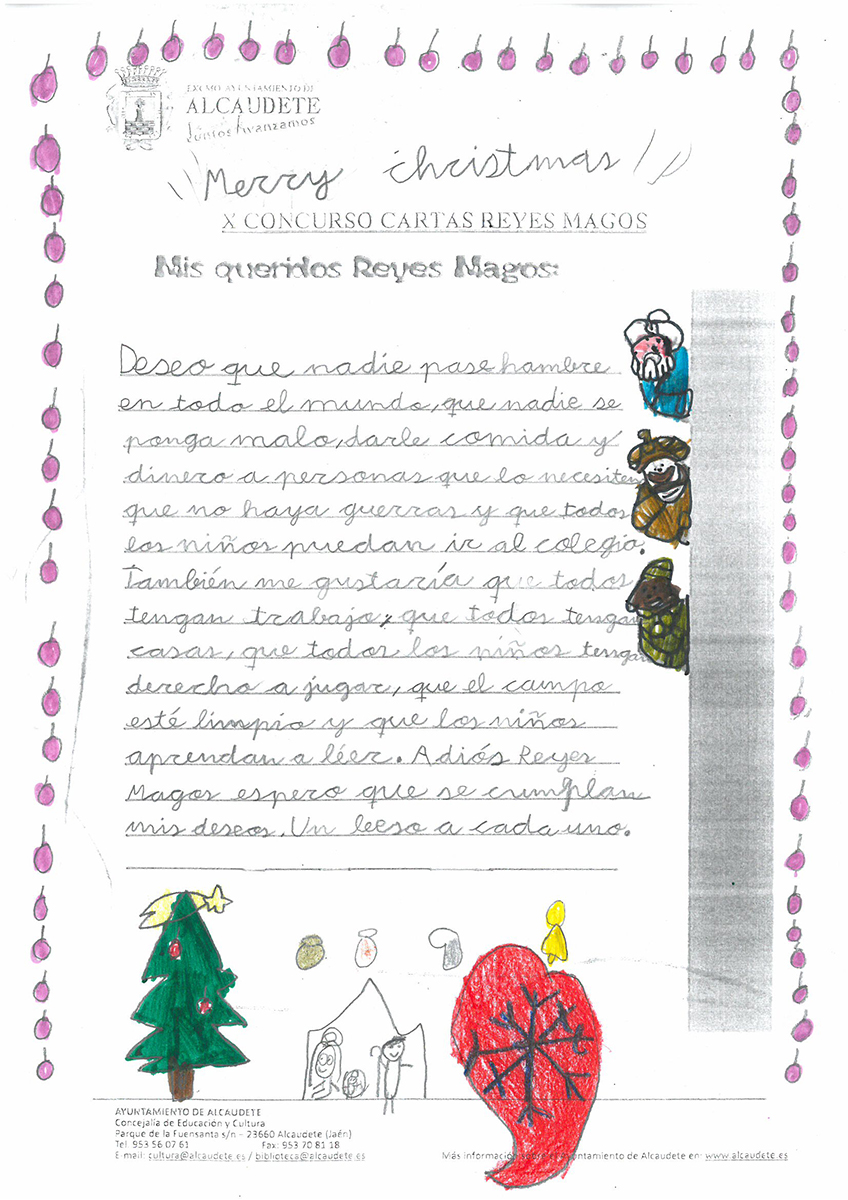 EXCMO. AYUNTAMIENTO DE
ALCAUDETE
Juntos Avanzamos
Merry christmas
X CONCURSO CARTAS REYES MAGOS
Mis queridos Reyes Magos:
Deseo que nadie pase hambre
en todo el mundo, que nadie se
ponga malo, darle comida y
dinero a personas que lo necesiten
que no haya guerras y que todos
los niños puedan ir al colegio.
También me gustaría que todos
tengan trabajo, que todos tengan
casas, que todos los niños tengan
derecho a jugar, que el campo
esté limpio y que los niños
aprendan a léer. Adiós Reyes
Magos espero que se cumplan
mis deseos. Un beso a cada uno.
AYUNTAMIENTO DE ALCAUDETE
Concejalía de Educación y Cultura
Parque de la Fuensanta s/n – 23660 Alcaudete (Jaén)
Tel. 953 56 07 61 Fax: 953 70 81 18
E-mail: cultura@alcaudete.es / biblioteca@alcaudete.es Más información sobre el Ayuntamiento de Alcaudete en: www.alcaudete.es